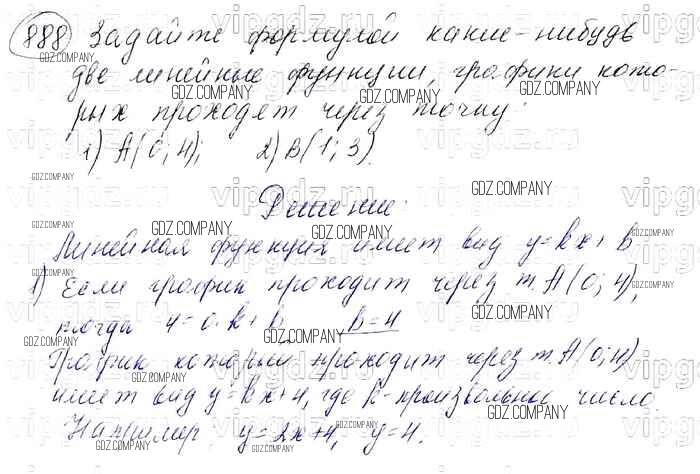 888 Задайте формулой какие-нибудь
две линейные функции, графики кото-
рых проходят через точку:
1) A(0; 4); 2) B(1; 3).
Решение:
Линейная функция имеет вид y=kx+b
1) Если график проходит через т. A(0; 4),
тогда 4=0·k+b, b=4
График который проходит через т. A(0;4)
имеет вид y=kx+4, где k-произвольное число
Например: y=2x+4, y=4.